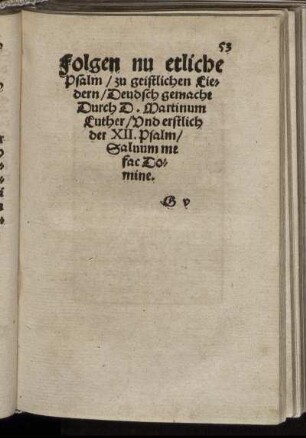 53
Folgen nu etliche
Psalm / zu geistlichen Lie-
dern / Deudsch gemacht
Durch D. Martinum
Luther / Vnd erstlich
der XII. Psalm /
Saluum me
fac Do-
mine.
G v